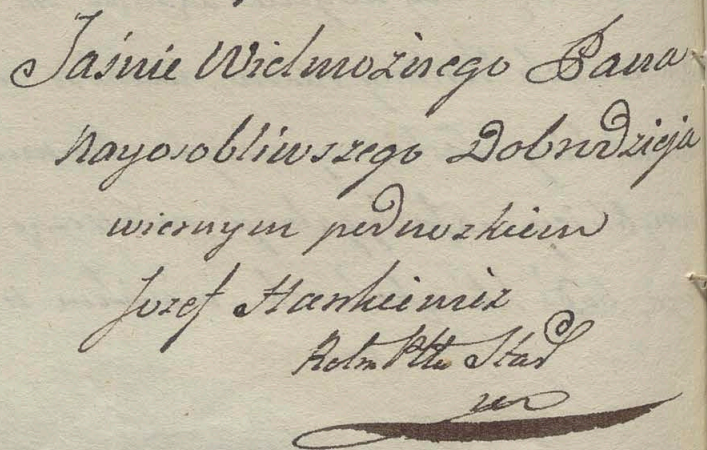 Jaśnie Wielmożnego Pana
Nayosobliwszego Dobrodzieja
wiernym podnozkiem
Jozef Stankiewicz
Rotm Ptu